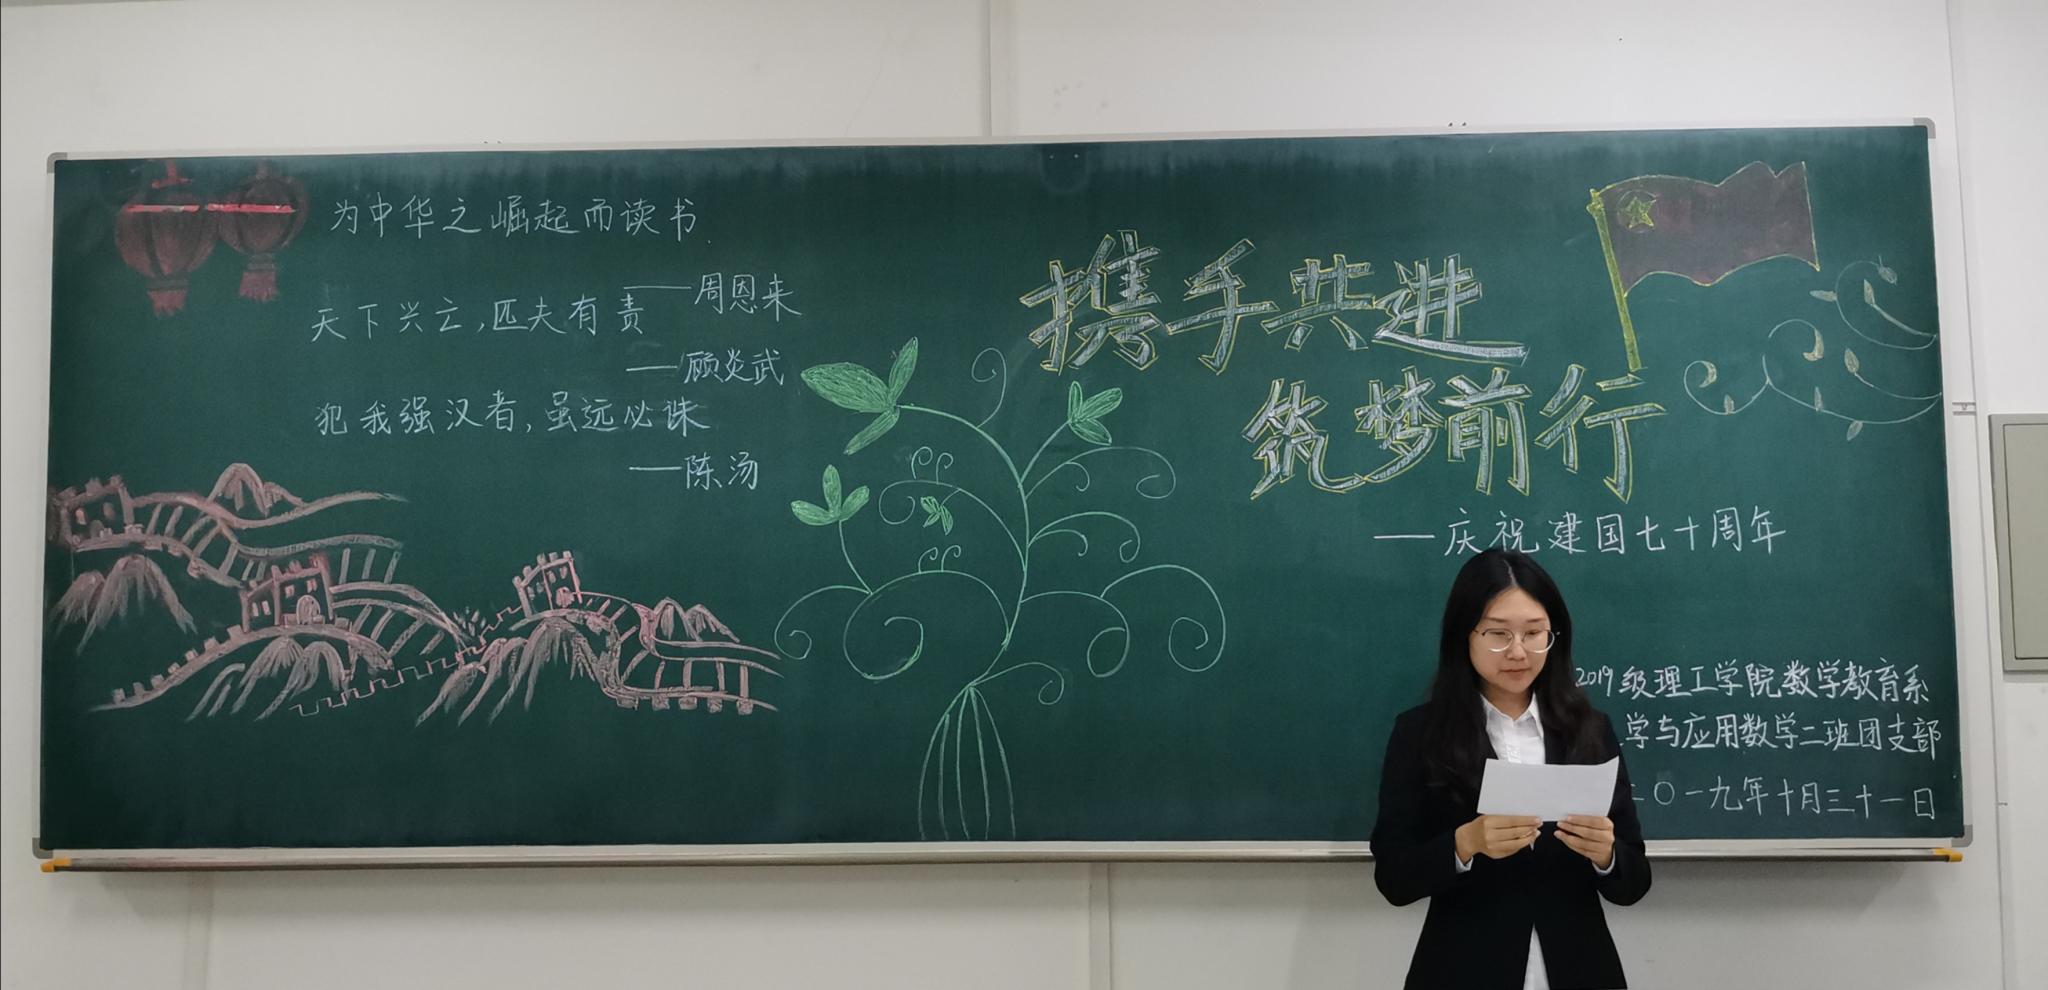 为中华之崛起而读书
——周恩来
天下兴亡,匹夫有责
——顾炎武
犯我强汉者,虽远必诛
——陈汤
携手共进
筑梦前行
——庆祝建国七十周年
2019级理工学院数学教育系
学与应用数学二班团支部
二〇一九年十月三十一日